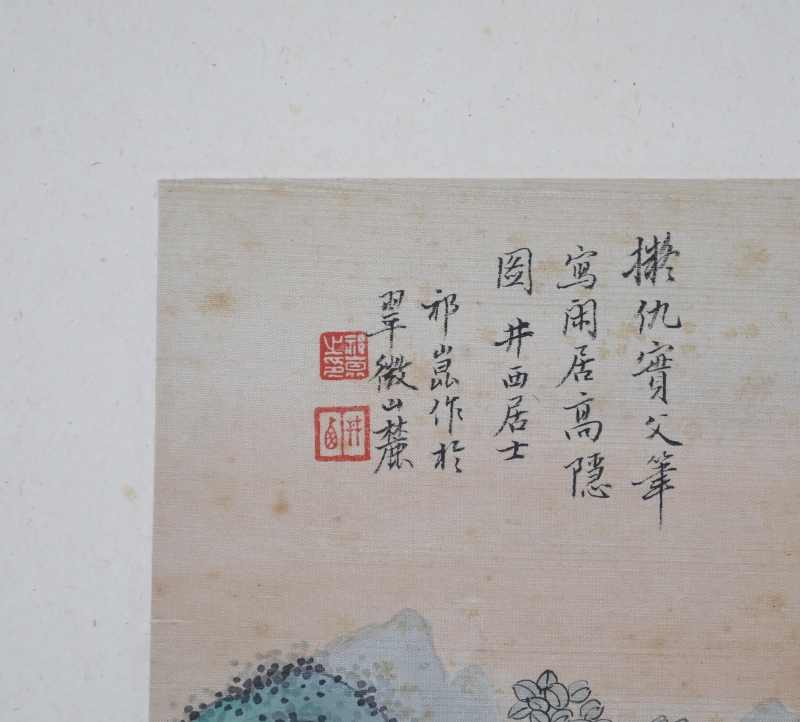 擬仇實父筆
寫閑居高隱
圖 井西居士
祁崑作於
翠微山麓
井西